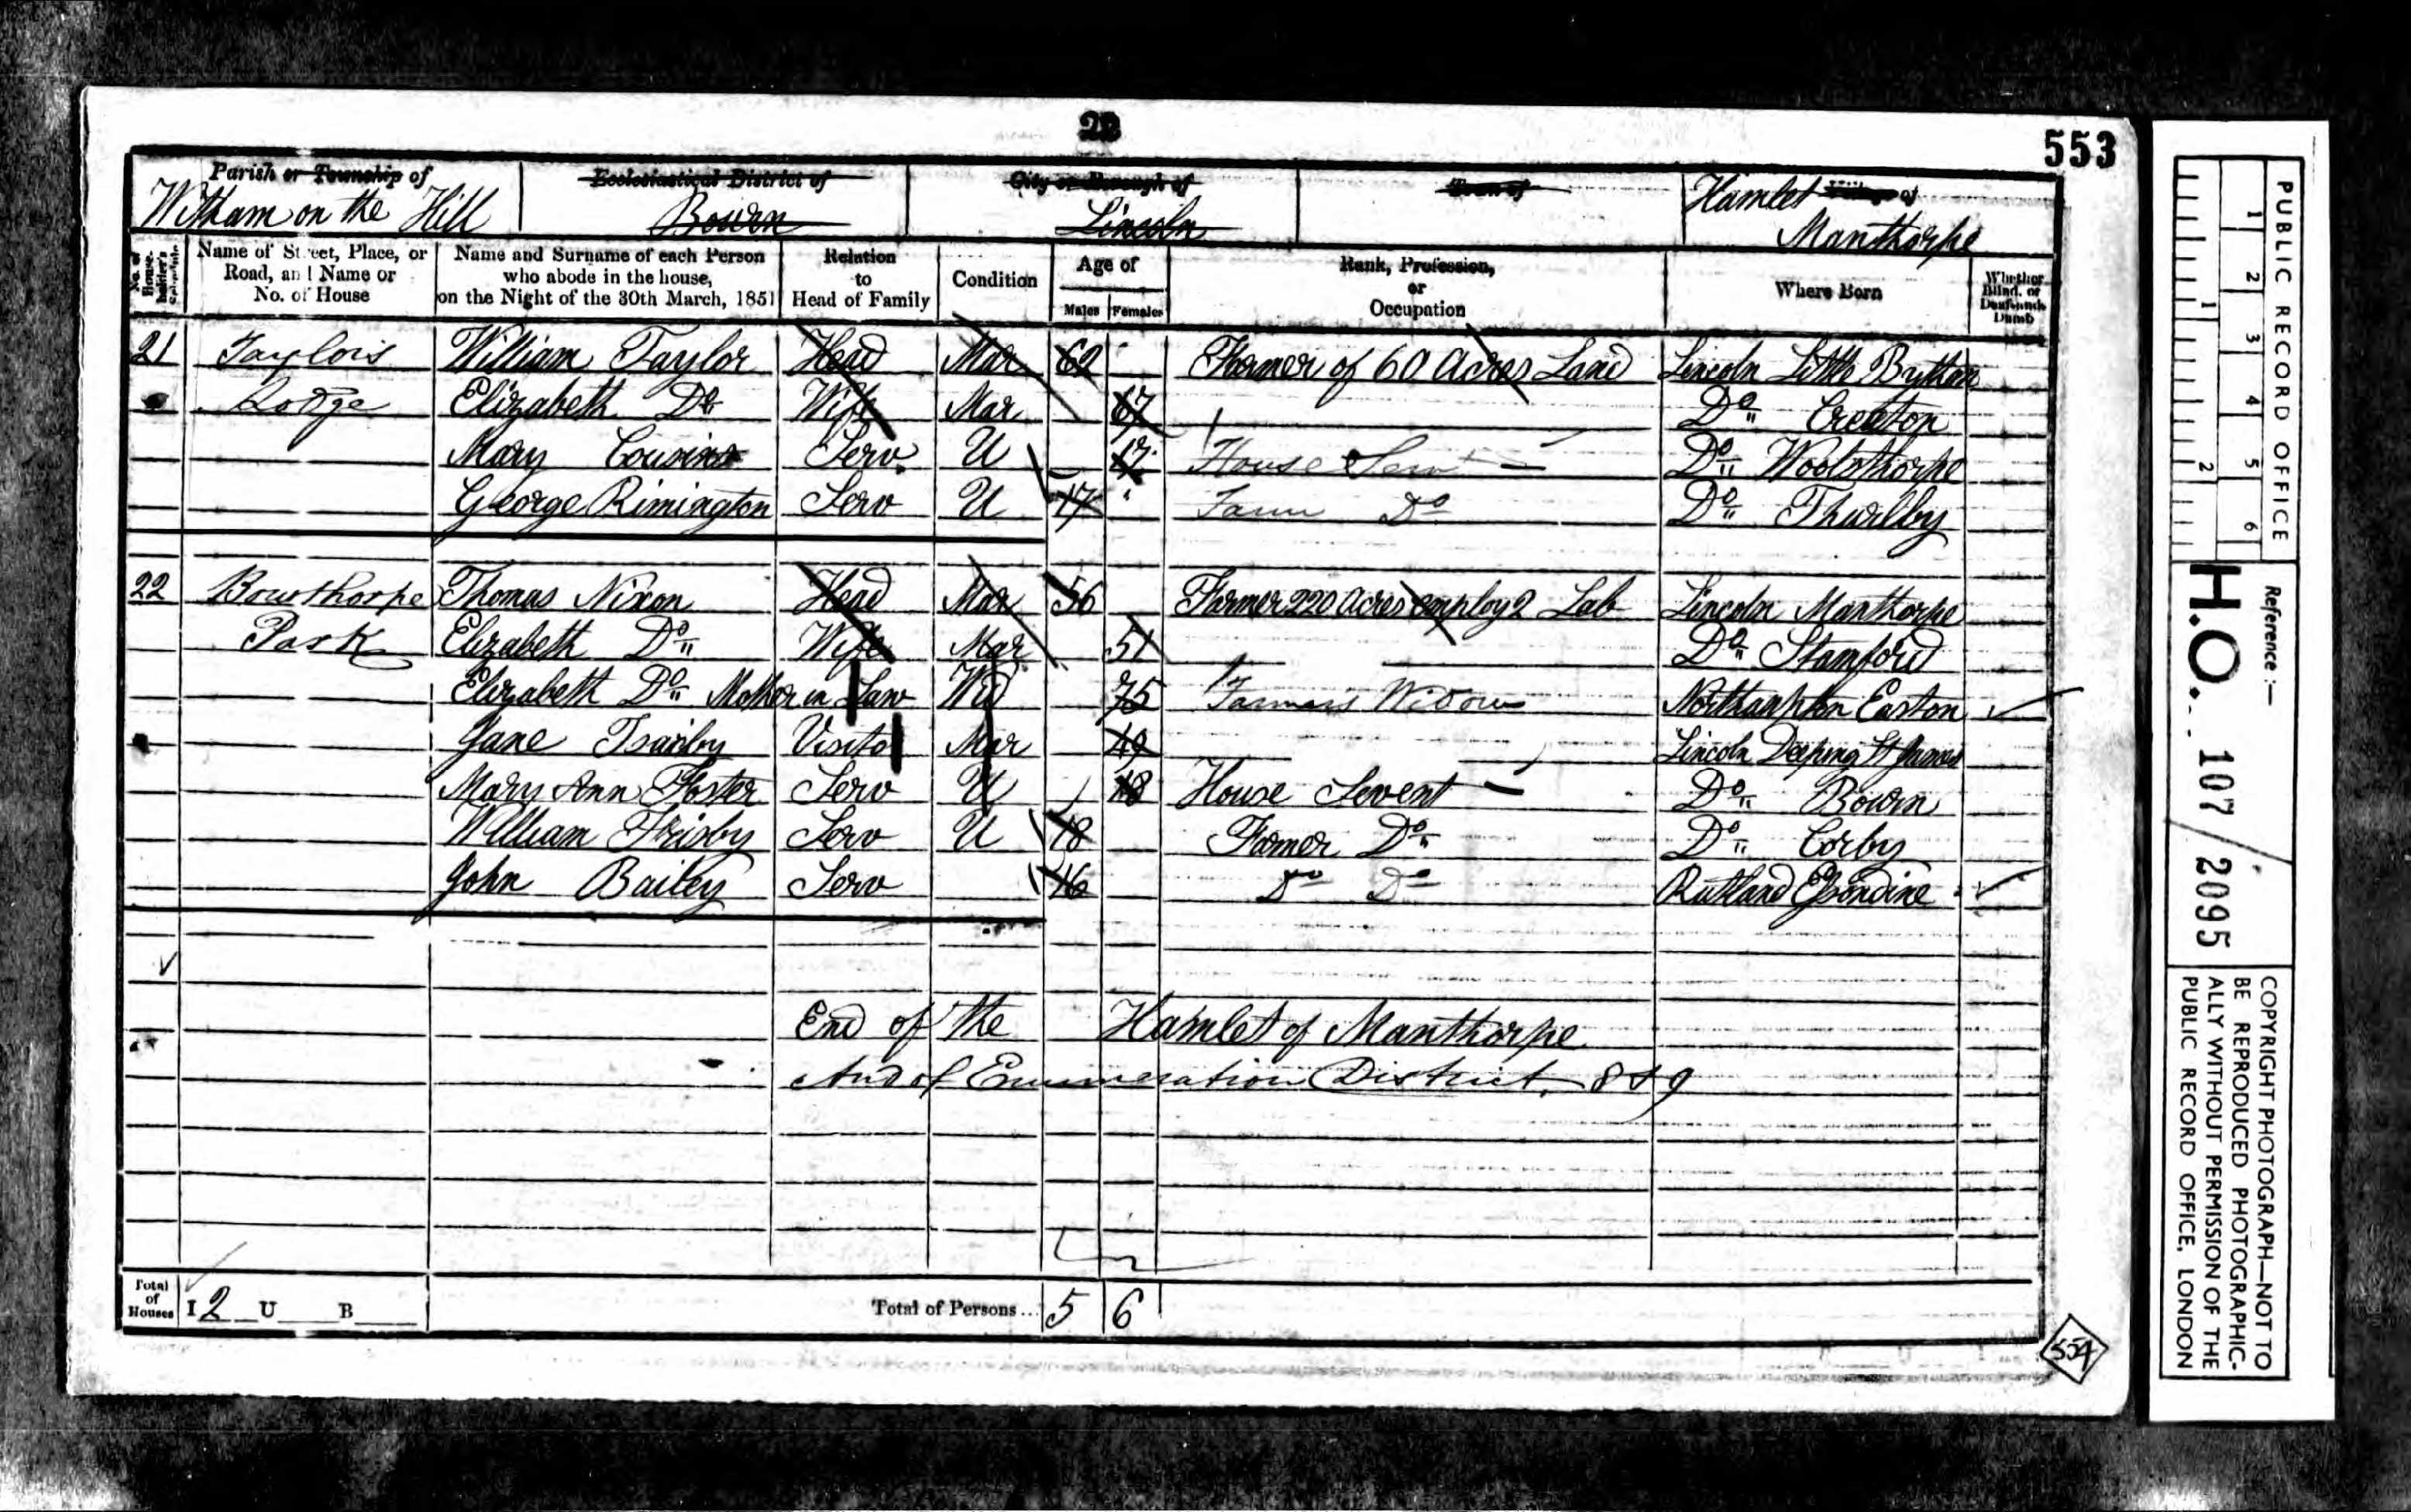 22
553
Parish or Township of
Witham on the Hill
Ecclesiastical District of
Bourn
City or Borough of
Lincoln
Town of
Hamlet Village of
Manthorpe
No. of House-holder's Schedule
Name of Street, Place, or Road, and Name or No. of House
Name and Surname of each Person who abode in the house, on the Night of the 30th March, 1851
Relation to Head of Family
Condition
Age of
Males Females
Rank, Profession, or Occupation
Where Born
Whether Blind, or Deaf-and-Dumb
21 Taylors William Taylor Head Mar 62 Farmer of 60 Acres Land Lincoln Little Bytham
Lodge Elizabeth Do Wife Mar 67 Do Creeton
Mary Cousins Serv U 17 House Serv Do Woolsthorpe
George Rimington Serv U 17 Farm Do Do Thurlby
22 Bowthorpe Thomas Nixon Head Mar 56 Farmer 220 Acres employ 2 Lab Lincoln Manthorpe
Park Elizabeth Do Wife Mar 51 Do Stamford
Elizabeth Do Mother in Law Wid 75 Farmers Widow Northampton Easton
Jane Visitor Mar 49 Lincoln Deeping St James
Mary Ann Foster Serv U 18 House Servent Do Bourn
William Frisby Serv U 18 Farmer Do Do Corby
John Bailey Serv 16 Do Do Rutland Essendine
End of the Hamlet of Manthorpe
And of Enumeration District 8 & 9
Total of Houses I 2 U B Total of Persons... 5 6
554
PUBLIC RECORD OFFICE
1 2 3 4 5 6
1 2
Reference :—
H.O. 107/2095
COPYRIGHT PHOTOGRAPH—NOT TO
BE REPRODUCED PHOTOGRAPHIC-
ALLY WITHOUT PERMISSION OF THE
PUBLIC RECORD OFFICE, LONDON